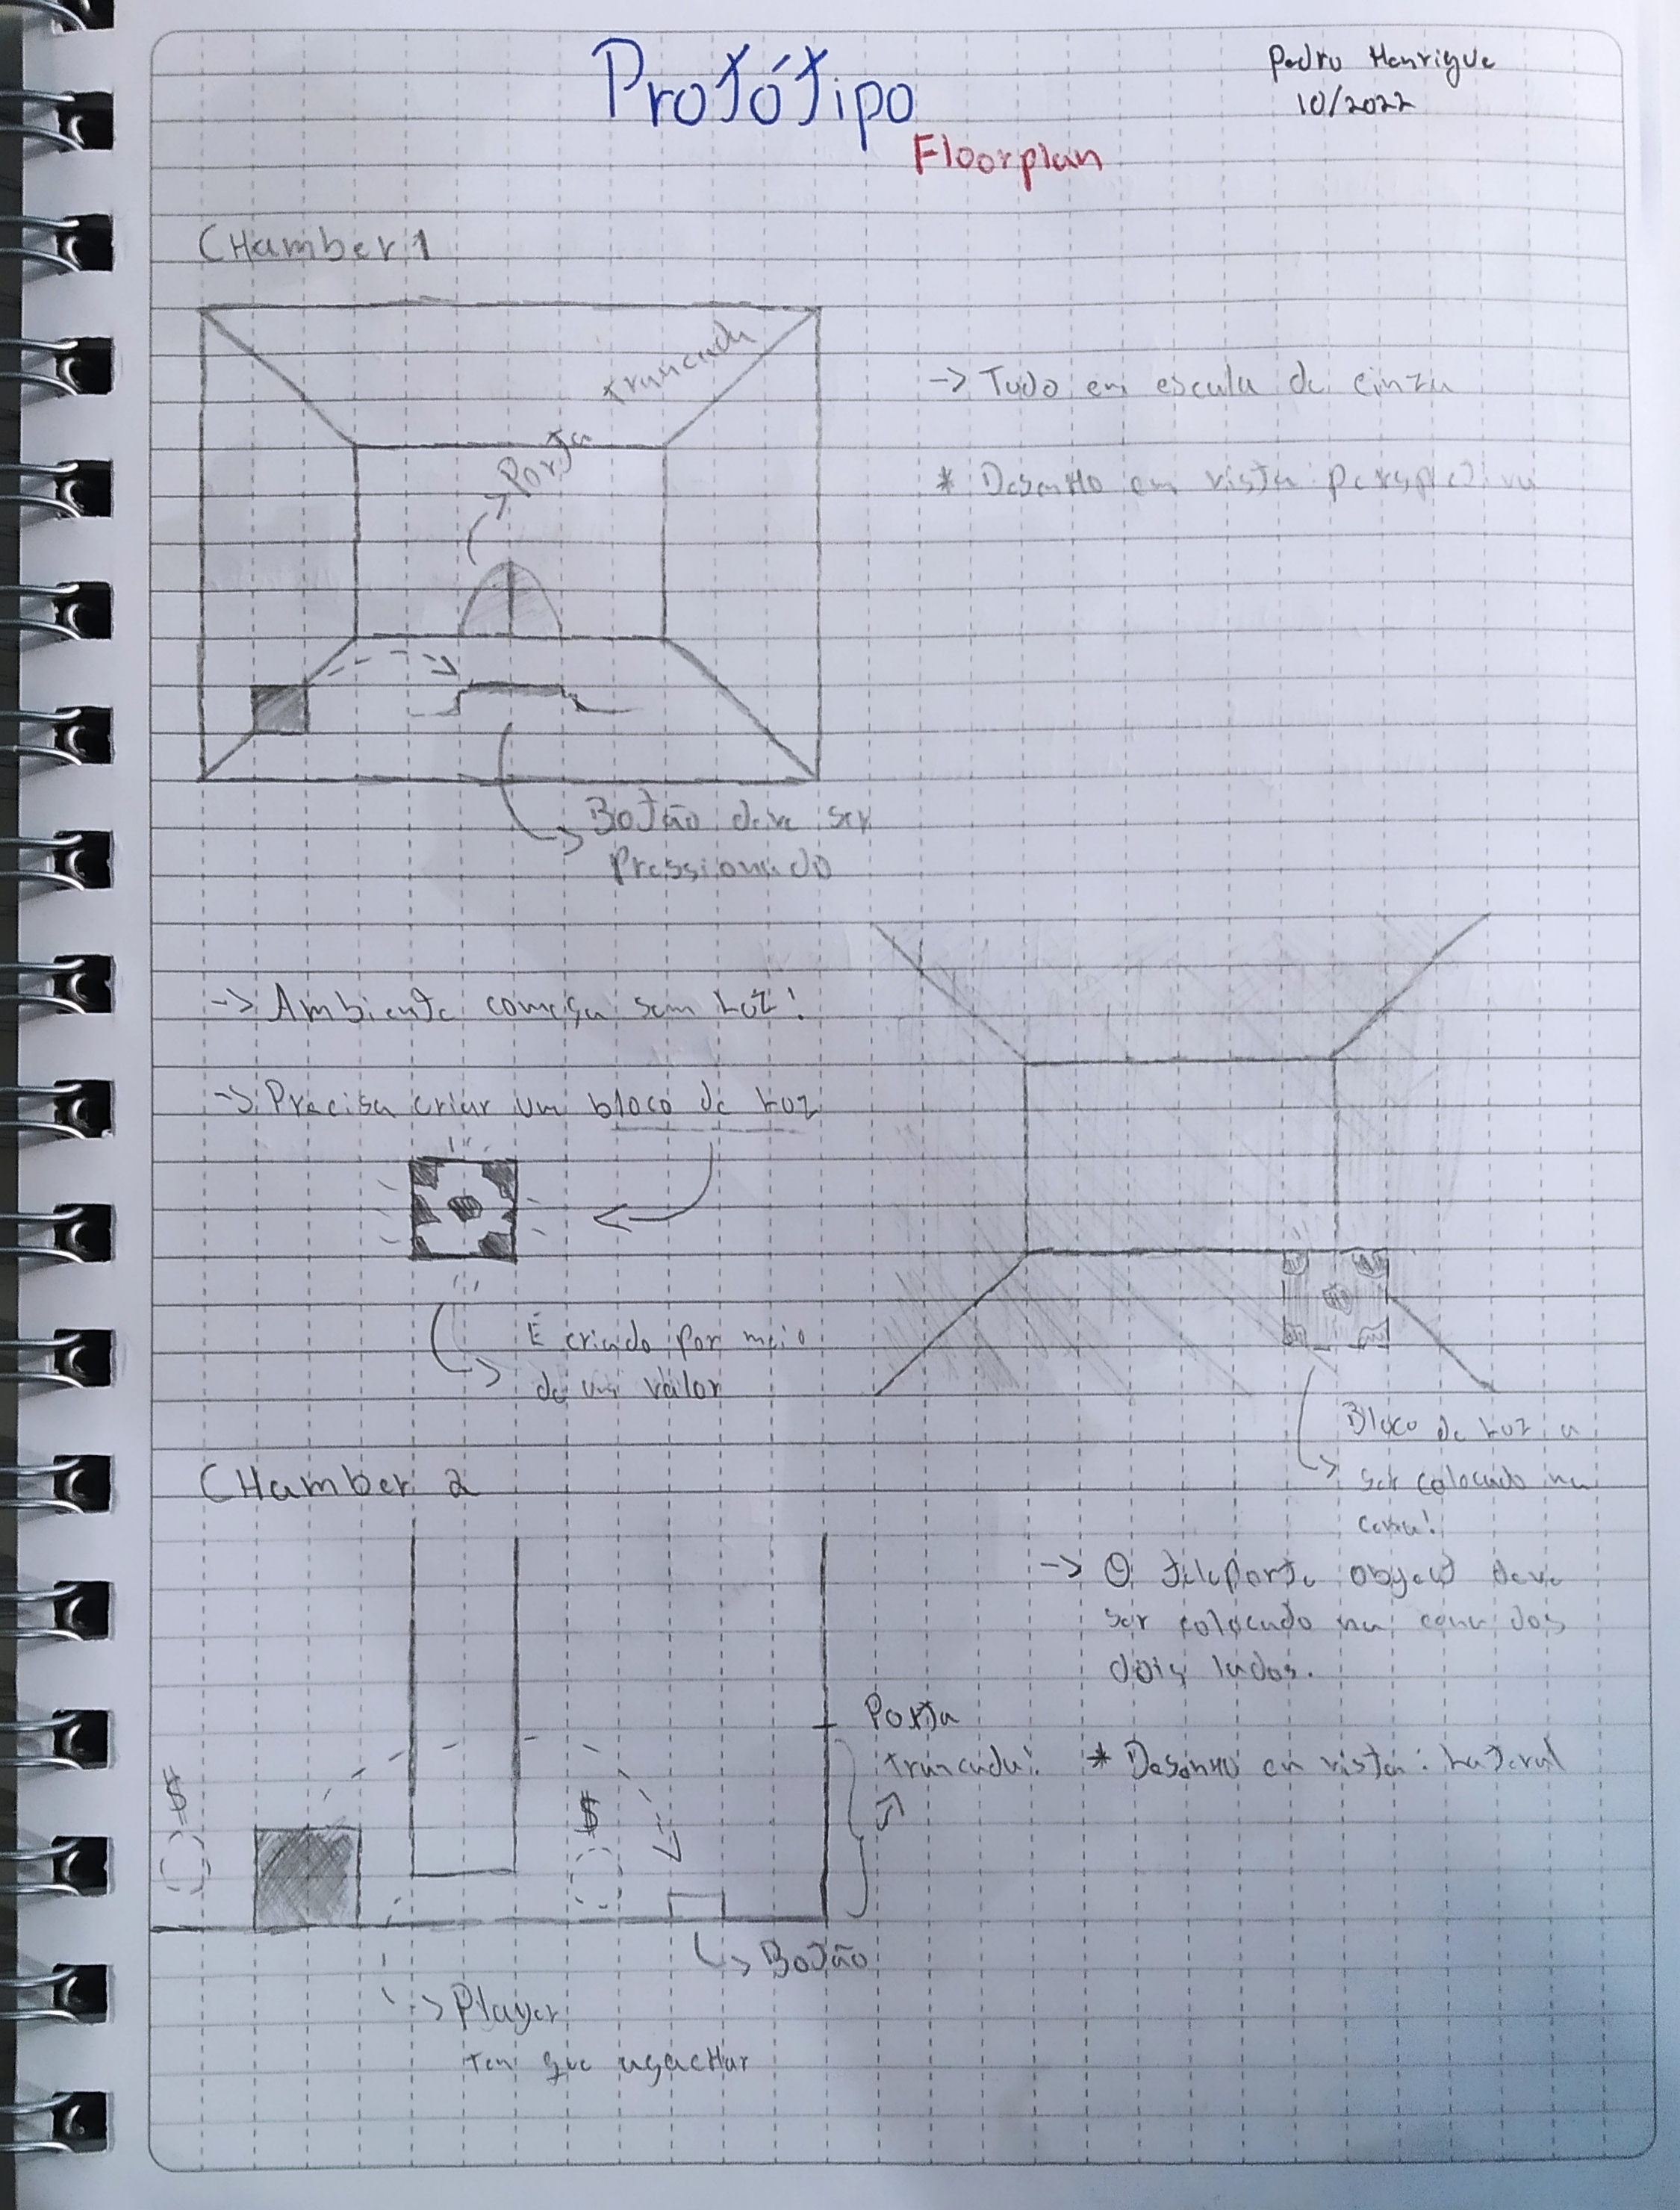 Protótipo
Floorplan
Pedro Henrique
10/2022
CHamber 1
trancada
Porta
-> Tudo em escala de cinza
* DesenHo em vista: perspectiva
Botão deve ser
Pressionado
-> Ambiente começa sem Luz!
-> Precisa criar um bloco de Luz
É criado por meio
de um valor
Bloco de Luz a
ser colocado na
cena!
CHamber 2
-> O teleporte object deve
ser colocado na cena dos
dois lados.
Porta
trancada!
* DesenHo em vista: Lateral
$
$
Botão
-> Player
tem que agacHar